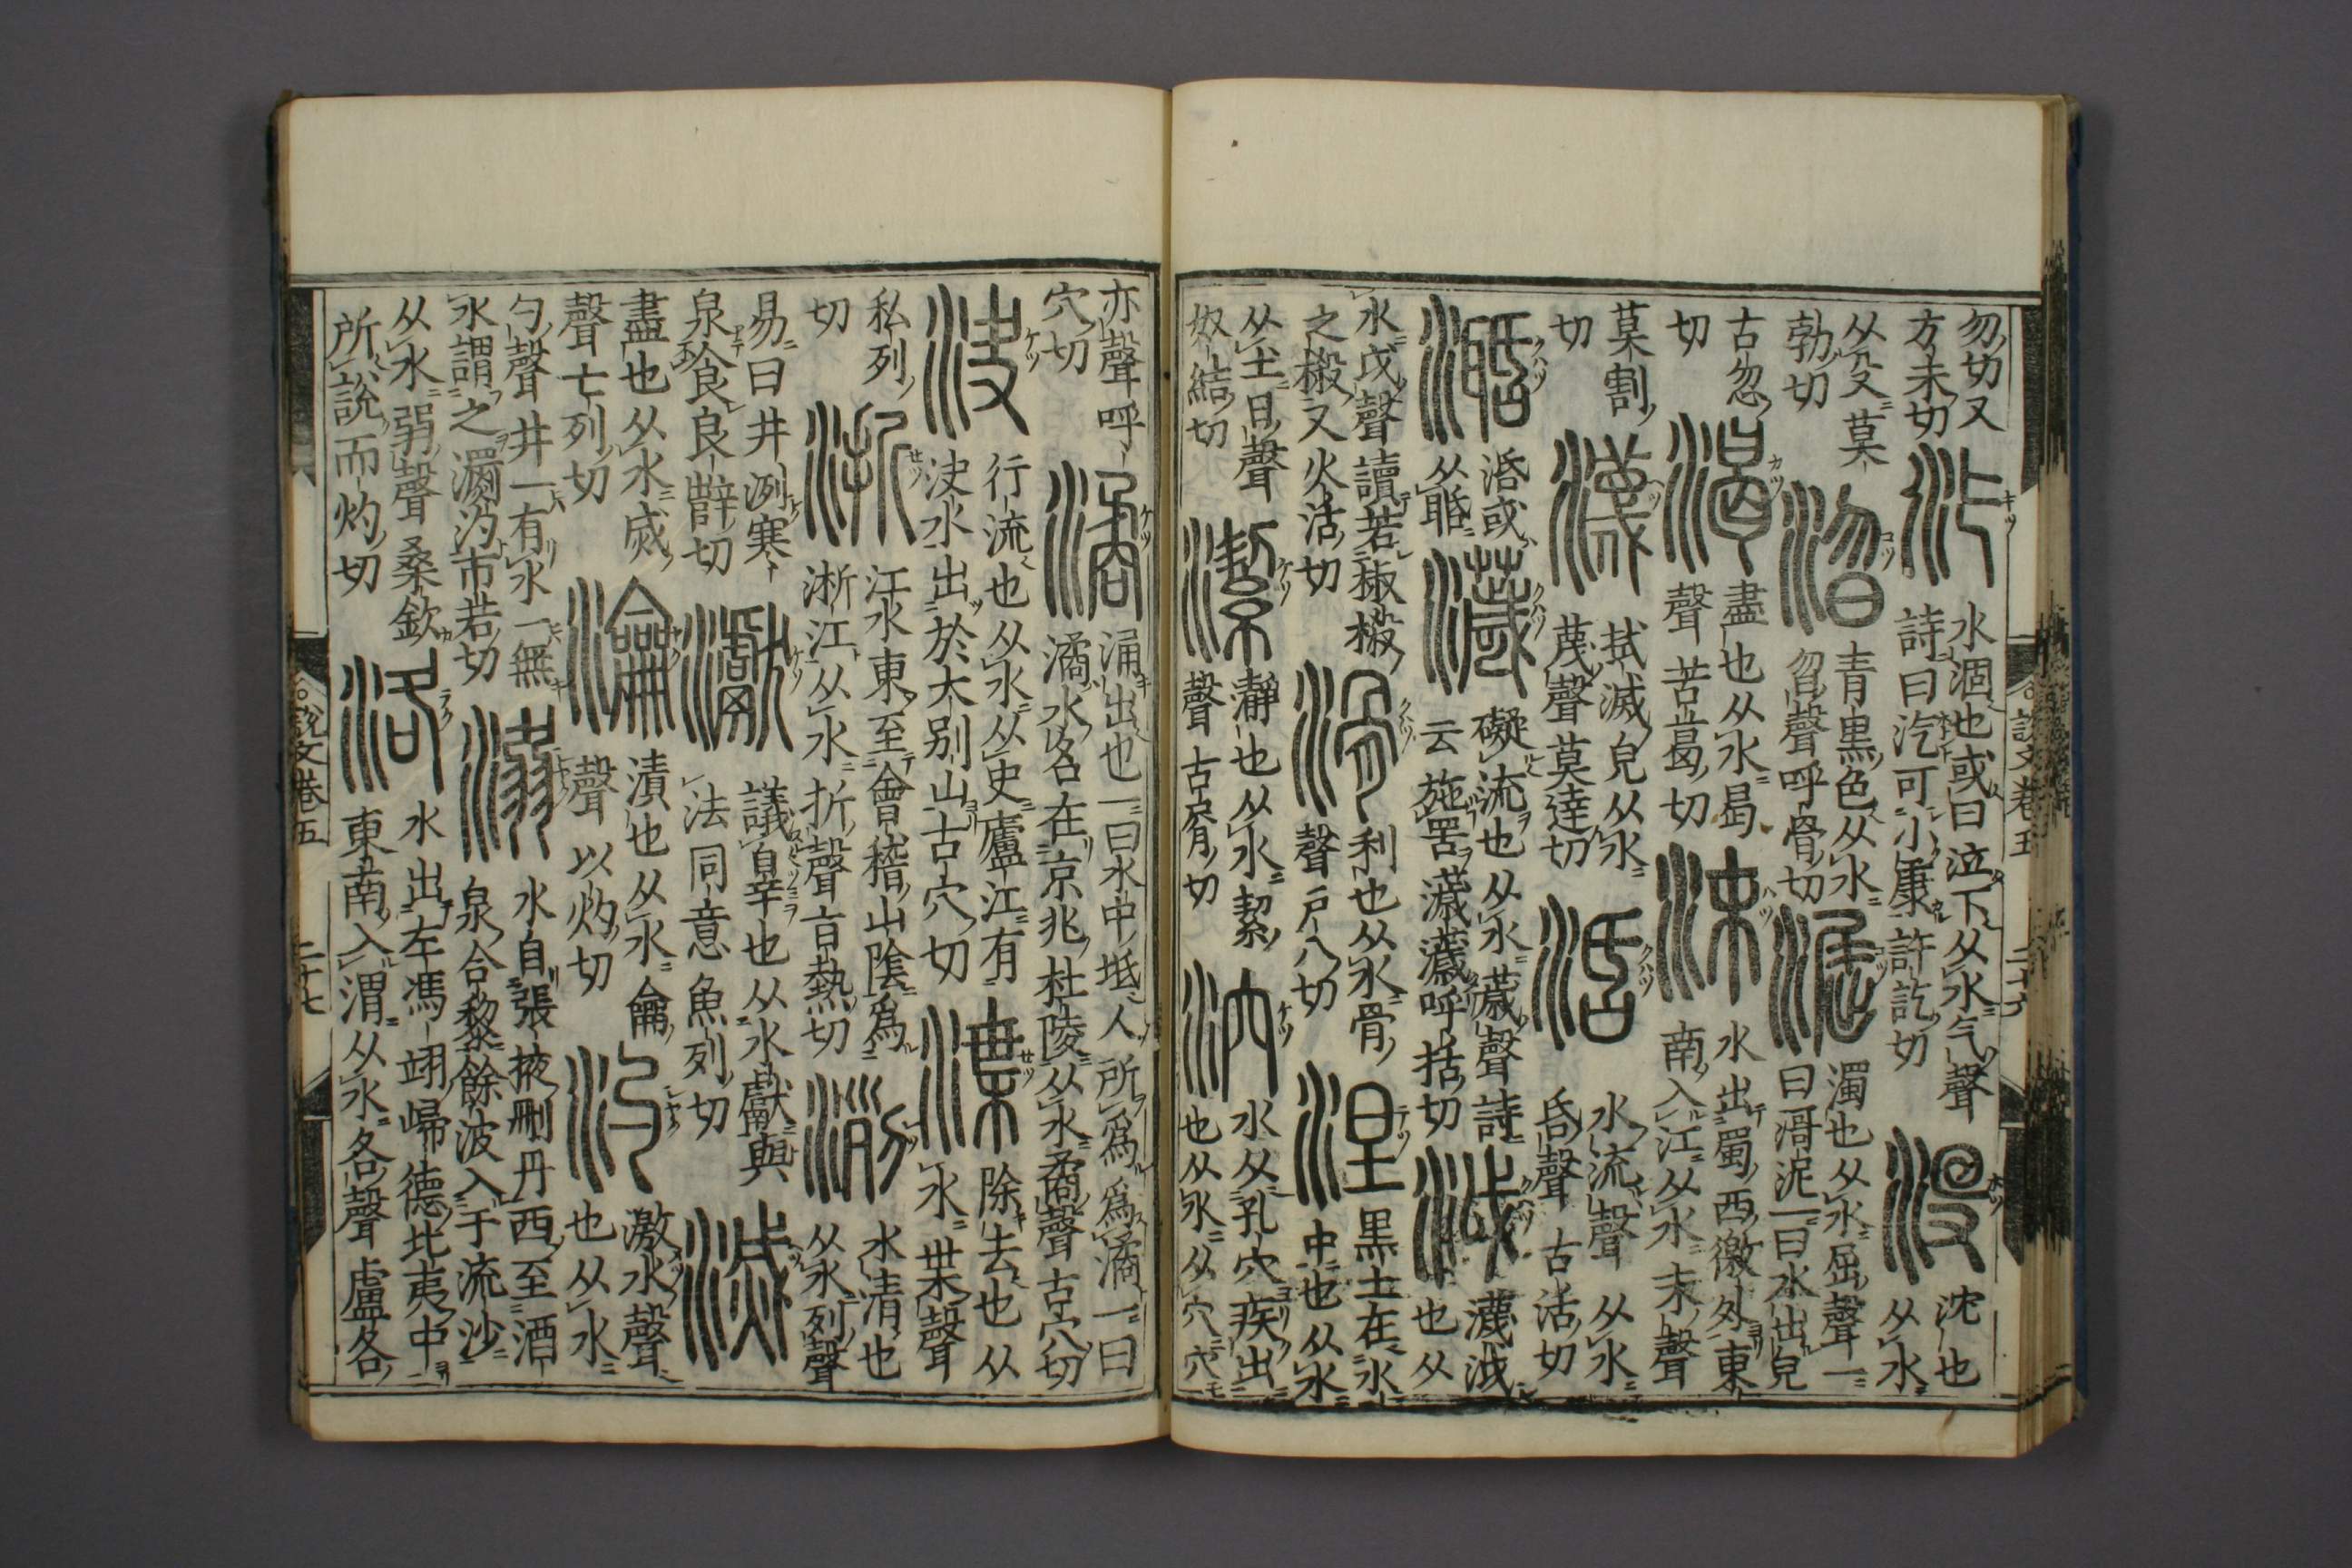 勿切又方未切 汽 水涸也或曰泣下从水气聲詩曰汽可小康許訖切 沒 沈也从水
从𠬛莫勃切 淴 青黒色从水曶聲呼骨切 淈 濁也从水屈聲一曰滒泥一曰水出皃
古忽切 渴 盡也从水曷聲苦葛切 沫 水出蜀西徼外東南入江从水末聲
莫割切 瀎 拭滅皃从水蔑聲莫達切 活 水流聲从水𠯑聲古活切
濊 礙流也从水薉聲詩云施罟濊濊呼括切 泧 瀎泧也从
水戉聲讀若椒樧之樧又火活切 滑 利也从水骨聲戶八切 涅 黒土在水中也从水
从土日聲奴結切 潔 瀞也从水絜聲古屑切 泬 水从孔穴疾出也从水从穴穴
說文卷五 二十六
亦聲呼穴切 潏 涌出也一曰水中坻人所爲爲潏一曰潏水名在京兆杜陵从水矞聲古穴切
決 行流也从水从史廬江有決水出於大別山古穴切 渫 除去也从水枼聲
私列切 浙 江水東至會稽山陰爲浙江从水折聲旨熱切 洌 水清也从水列聲
易曰井洌寒泉食良辥切 瀗 議辠也从水獻與法同意魚列切 滅
盡也从水烕聲亡列切 瀹 漬也从水龠聲以灼切 汋 激水聲也从水
勺聲井一有水一無水謂之瀱汋市若切 溺 水自張掖刪丹西至酒泉合黎餘波入于流沙
从水弱聲桑欽所說而灼切 洛 水出左馮翊歸德北夷中東南入渭从水各聲盧各
說文卷五 二十七